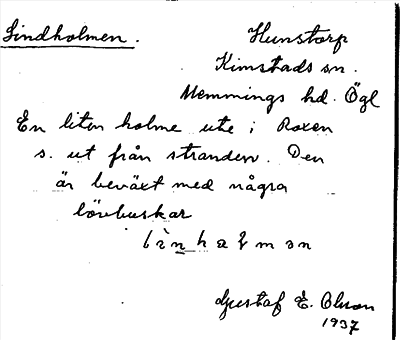 Lindholmen.
Hunstorp
Kimstads sn.
Memmings hd. Ögl
En liten holme ute i Roxen
s. ut från stranden. Den
är beväxt med några
lövbuskar
Gustaf E. Olsson
1937